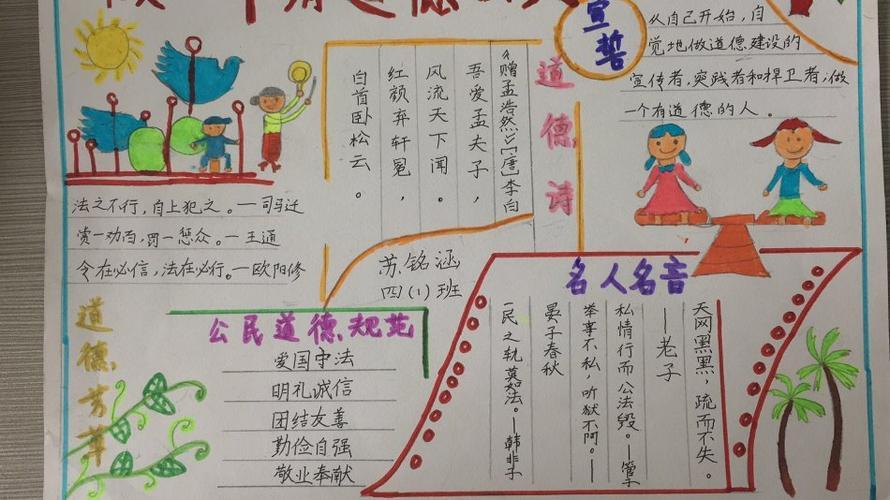 有道德
宣誓
从自己开始，自
觉地做道德建设的
宣传者，实践者和捍卫者，做
一个有道德的人。
道德诗
《赠孟浩然》［唐］李白
吾爱孟夫子，
风流天下闻。
红颜弃轩冕，
白首卧松云。
法之不行，自上犯之。—司马迁
赏一劝百，罚一惩众。—王通
令在必信，法在必行。—欧阳修
苏铭涵
四（1）班
道德芳草
公民道德规范
爱国守法
明礼诚信
团结友善
勤俭自强
敬业奉献
名人名音
天网黑黑，疏而不失。
——老子
私情行而公法毁。—管子
举事不私，听狱不阿。—
晏子春秋
一民之轨莫如法。—韩非子